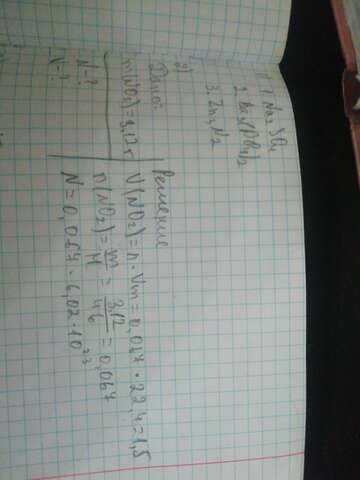 1. Na2SO4
2.
3. Zn3N2
2)
Дано:
m(NO2)=3,12г
N-?
V-?
Решение
V(NO2)=n·Vm=0,067·22,4=1,5
n(NO2)=m/M=3,12/46=0,067
N=0,067·6,02·10²³